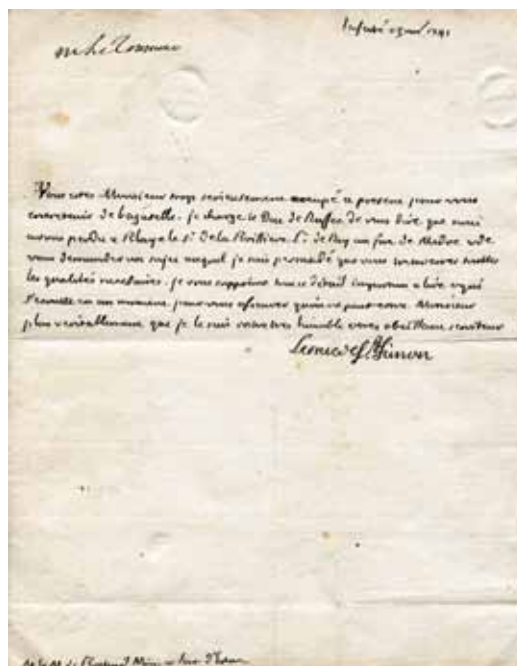 la ferté 1741
Vous estes Monsieur trop serieusement occupé a present pour vous
entretenir de bagatelle. je charge le Duc de Ruffec de vous dire que nous
avons perdu a Blaye le sr. de la Lt. de Roy au fort de Medoc et de
vous demander un sujet auquel je suis persuadé que vous trouverez toutes
les qualités necessaires. je vous supprime tout detail ennuyeux a lire et qui
en un moment pour vous asseurer qu'on ne peut estre Monsieur
plus veritablement que je le suis vostre tres humble et tres obeissant serviteur
Le Duc de St Simon
M. le M. de Breteuil Min.